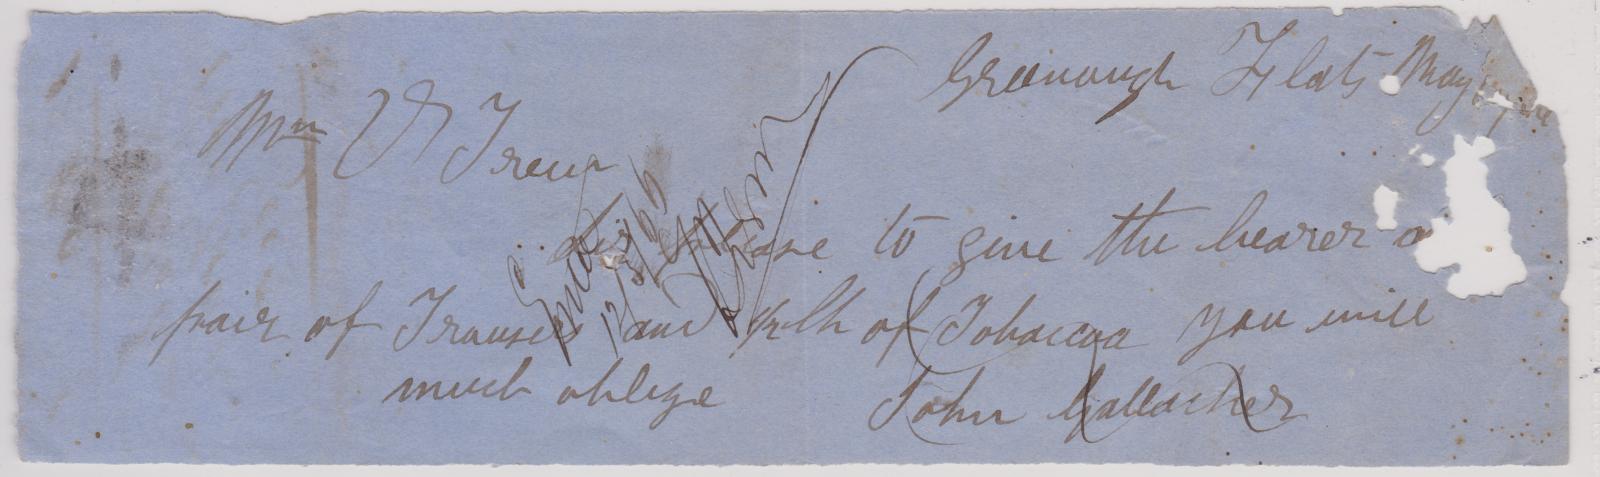 Greenough Flats May
Wm
Sir please to give the bearer a
pair of Trousers and 1/2 lb of Tobaccoa you will
much oblige John Gallacher
Entd